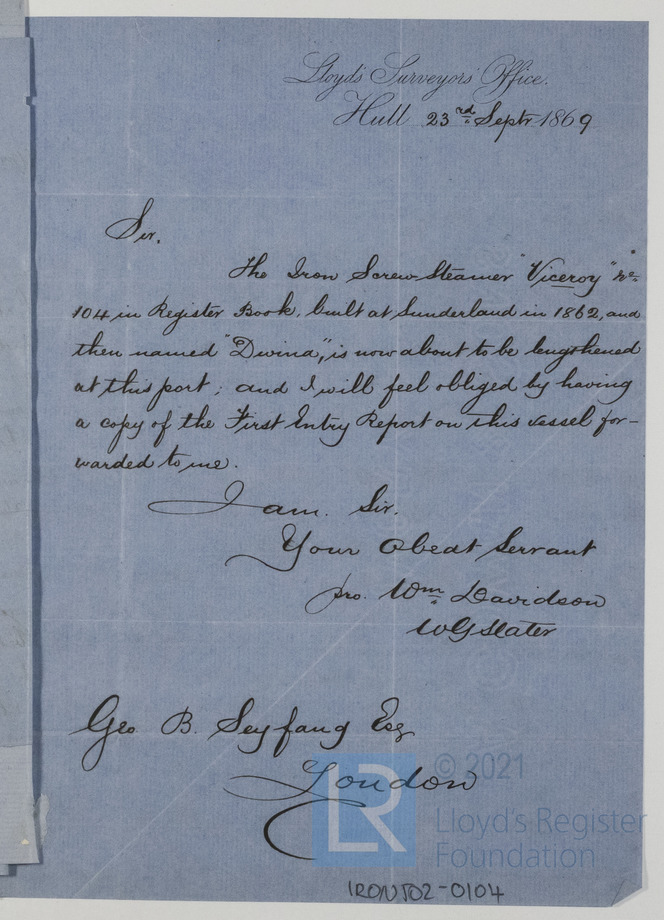 Lloyd's Surveyors' Office.
Hull 23rd Septr 1869
Sir.
The Iron Screw Steamer "Viceroy" No.
104 in Register Book, built at Sunderland in 1862, and
then named "Dwina", is now about to be lengthened
at this port; and I will feel obliged by having
a copy of the First Entry Report on this vessel for-
warded to me.
I am. Sir.
Your Obedt Servant
pro. Wm Davidson
WG Slater
Geo B. Seyfang Esq
London
LR © 2021
Lloyd's Register
Foundation
IRON502-0104